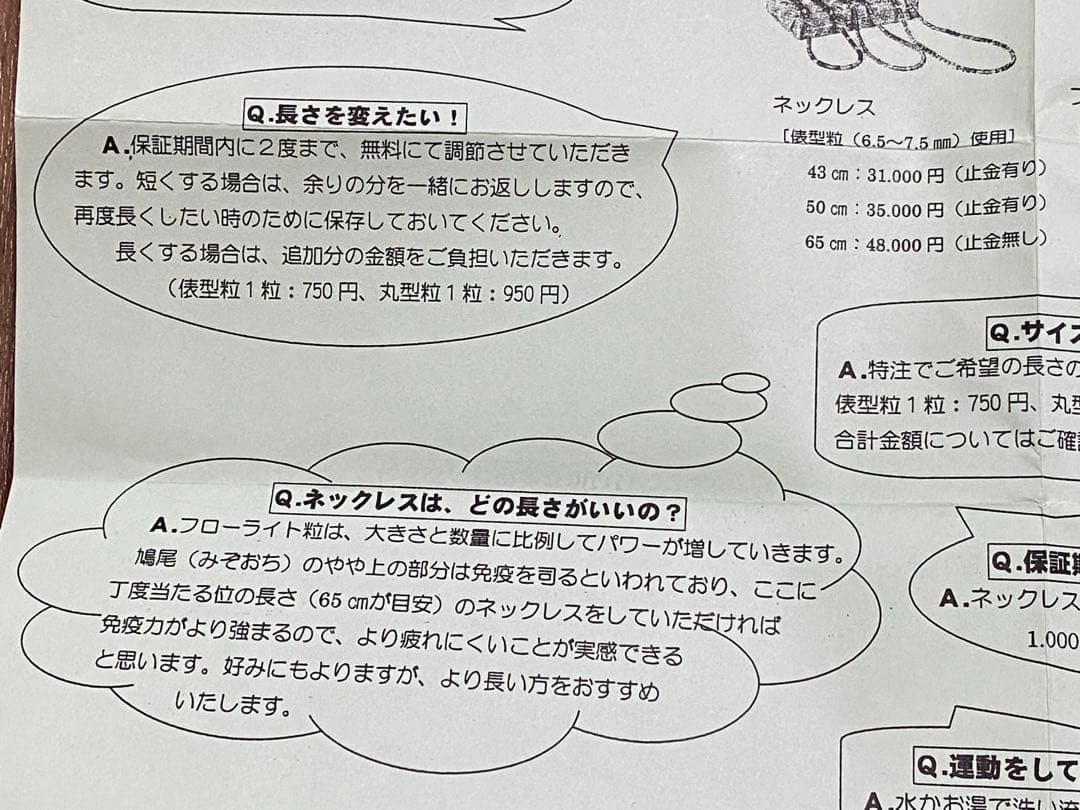 Q.長さを変えたい！
A.保証期間内に２度まで、無料にて調節させていただき
ます。短くする場合は、余りの分を一緒にお返ししますので、
再度長くしたい時のために保存しておいてください。
長くする場合は、追加分の金額をご負担いただきます。
（俵型粒１粒：750円、丸型粒１粒：950円）
ネックレス
［俵型粒（6.5～7.5㎜）使用］
43㎝：31.000円（止金有り）
50㎝：35.000円（止金有り）
65㎝：48.000円（止金無し）
Q.サイズ
A.特注でご希望の長さの
俵型粒１粒：750円、丸型
合計金額についてはご確認
Q.ネックレスは、どの長さがいいの？
A.フローライト粒は、大きさと数量に比例してパワーが増していきます。
鳩尾（みぞおち）のやや上の部分は免疫を司るといわれており、ここに
丁度当たる位の長さ（65㎝が目安）のネックレスをしていただければ
免疫力がより強まるので、より疲れにくいことが実感できる
と思います。好みにもよりますが、より長い方をおすすめ
いたします。
Q.保証期
A.ネックレス
1.000
Q.運動をして
A.水かお湯で洗い流